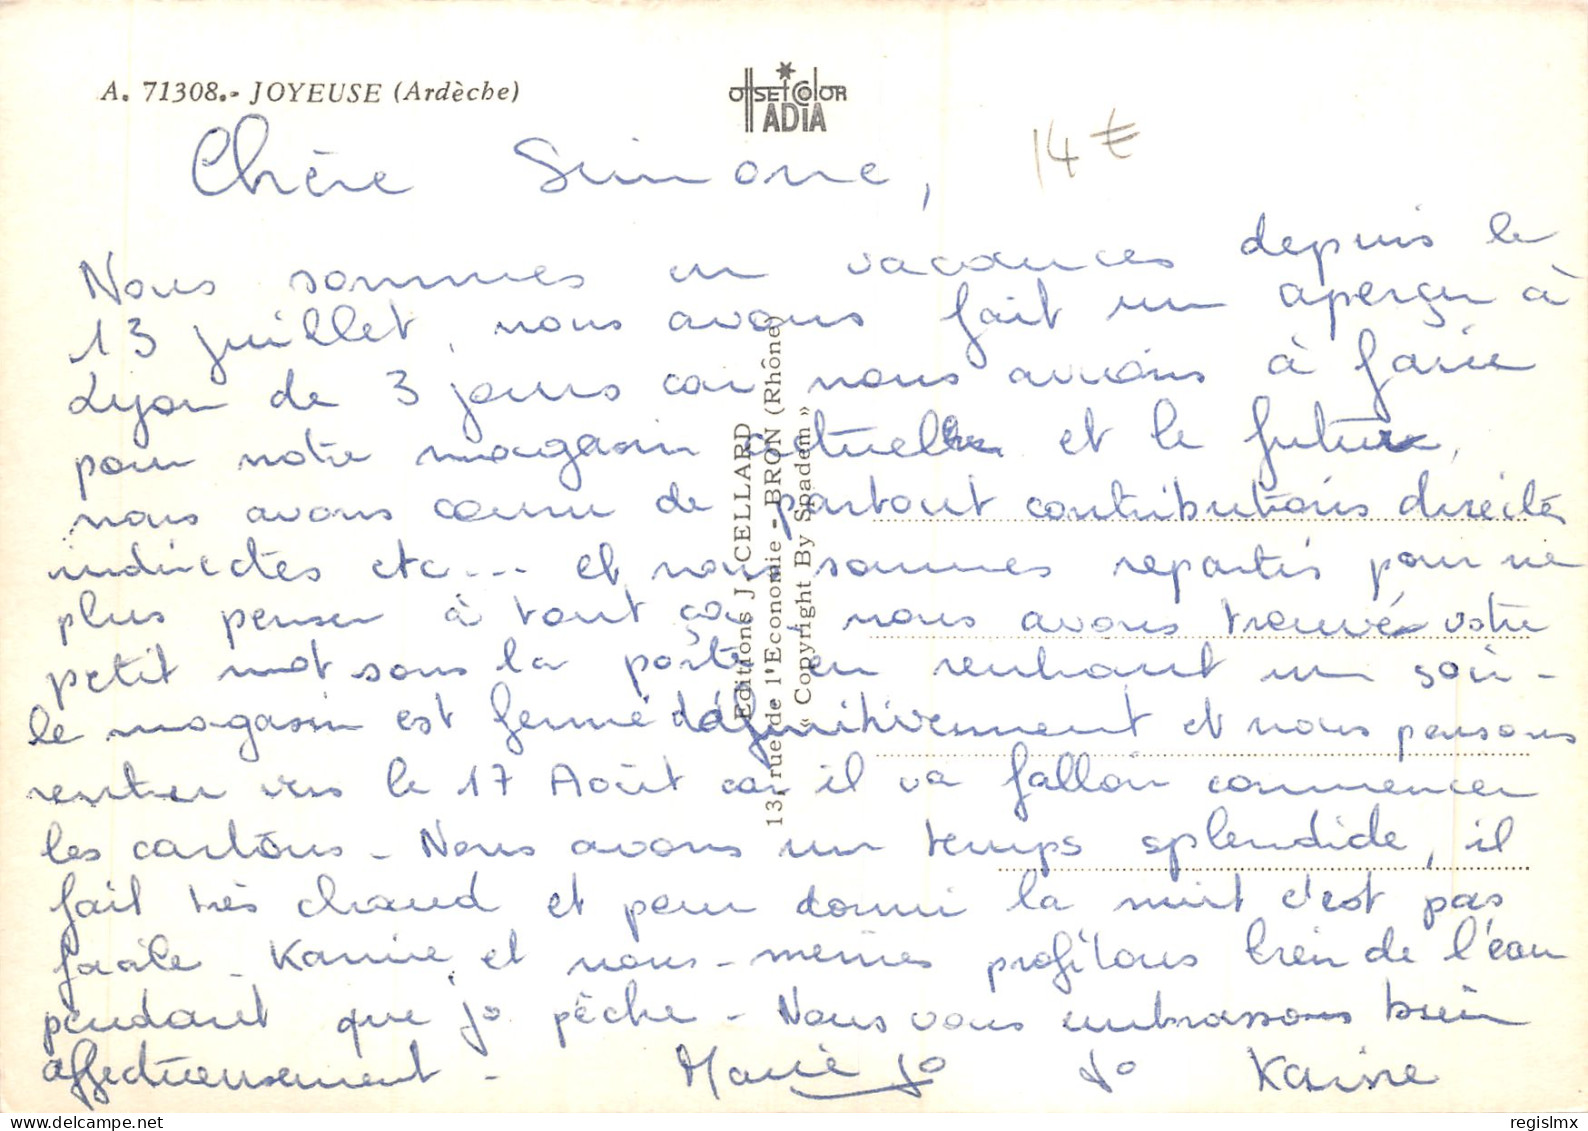 A. 71308.- JOYEUSE (Ardèche)
OffsetColor
ADIA
14 €
Chère Simone,
Nous sommes en vacances depuis le
13 juillet, nous avons fait un aperçu à
Lyon de 3 jours car nous avions à faire
pour notre magasin actuelle et le futur,
nous avons couru de partout contributions directes
indirectes etc... et nous sommes repartis pour ne
plus penser à tout ça, nous avons trouvé votre
petit mot sous la porte en rentrant un soir -
le magasin est fermé définitivement et nous pensons
rentrer vers le 17 Août car il va falloir commencer
les cartons - Nous avons un temps splendide, il
fait très chaud et pour dormir la nuit c'est pas
facile - Karine et nous-mêmes profitons bien de l'eau
pendant que jo pêche - Nous vous embrassons bien
affectueusement - Marie jo Jo Karine
Editions J. CELLARD
13, rue de l'Economie - BRON (Rhône)
« Copyright By Spadem »
regislmx